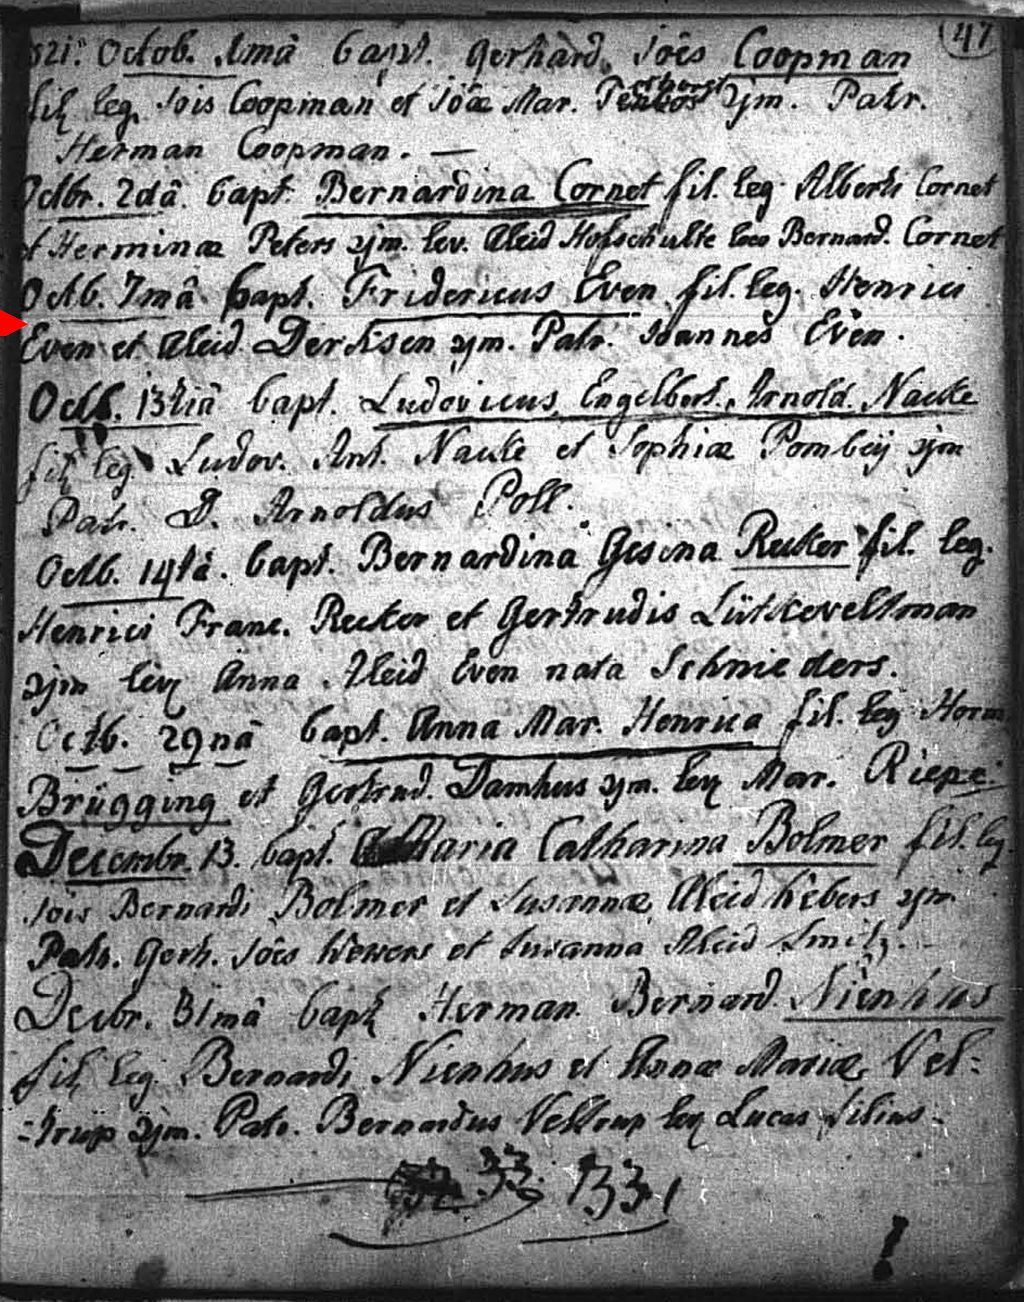 47
821. Octob. 1mâ bapt. Gerhard. Joês Coopman
fil leg. Jois Coopman et Joæ Mar. sjm. Patr.
Herman Coopman. —
Octbr. 2dâ. bapt. Bernardina Cornet fil. leg. Alberti Cornet
et Herminæ Peters sjm. lev. Aleid Hofschulte loco Bernard. Cornet
Octb. 7mâ bapt. Fridericus Even fil. leg. Henrici
Even et Aleid. Derksen sjm. Patr. Joannes Even.
Octb. 13tiâ bapt. Ludovicus Engelbert. Arnold. Nacke
fil leg. Ludov. Ant. Nacke et Sophiæ Pombeij sjm
Patr. D. Arnoldus Poll.
Octb. 14tâ. bapt. Bernardina Gesina Recker fil. leg.
Henrici Franc. Recker et Gertrudis Lütkeveltman
sjm lev Anna Aleid Even nata Schnieders.
Octb. 29nâ bapt. Anna Mar. Henrica fil. leg Herm
Brügging et Gertrud. Damhus sjm. lev Mar. Riepe.
Decembr. 13. bapt. Maria Catharina Bolmer fil. leg.
Jois Bernardi Bolmer et Susannæ Aleid Webers sjm.
Patr. Gerh. Joês Wewers et Susanna Aleid Smitz.
Decbr. 31mâ bapt Herman Bernard. Nienhus
fil leg. Bernardi Nienhus et Annæ Mariæ Vel=
=trup sjm. Patr. Bernardus Veltrup lev Lucas Silius.
33. 133